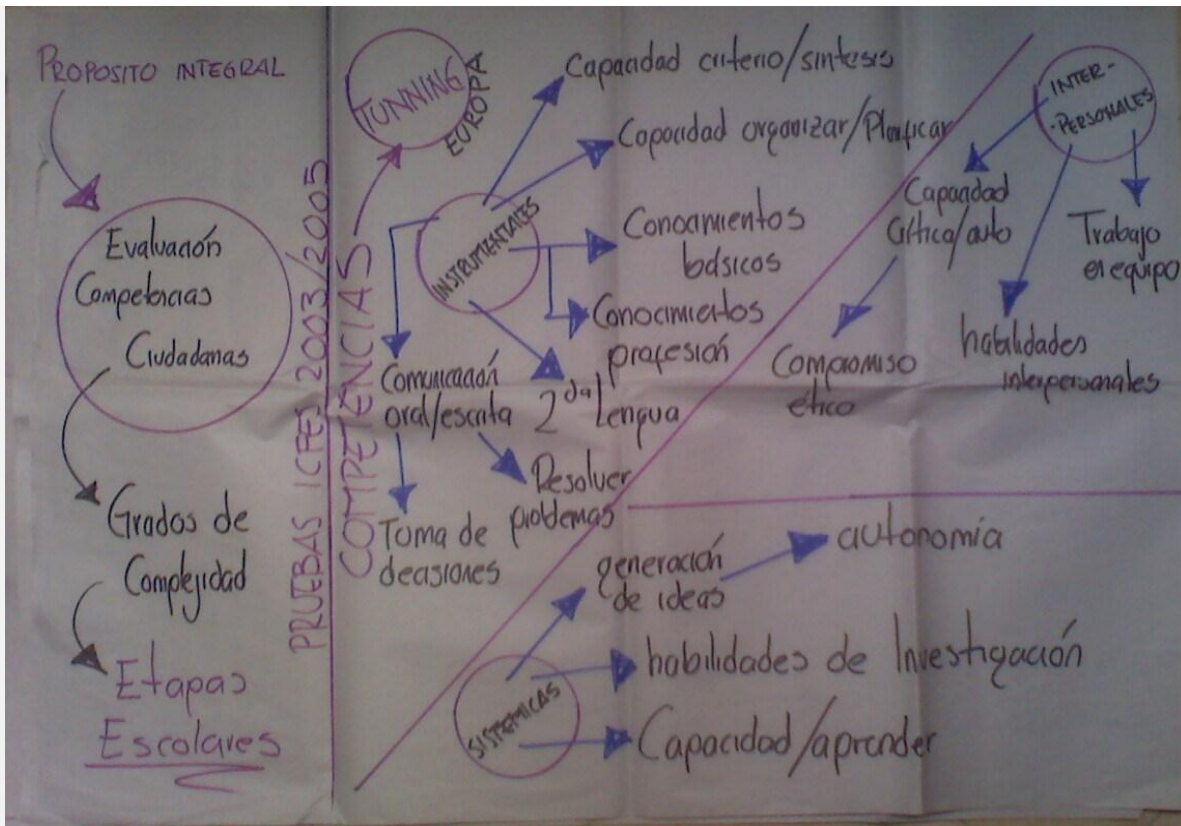 PROPOSITO INTEGRAL
Evaluación
Competencias
Ciudadanas
Grados de
Complejidad
Etapas
Escolares
PRUEBAS ICFES 2003/2005
COMPETENCIAS
TUNNING
EUROPA
INSTRUMENTALES
Capacidad criterio/sintesis
Capacidad organizar/Planficar
Conocimientos
básicos
Conocimientos
profesión
2da Lengua
Comunicación
oral/escrita
Resolver
problemas
Toma de
decisiones
INTER-
-PERSONALES
Capacidad
Crítica/auto
Compromiso
ético
habilidades
interpersonales
Trabajo
en equipo
SISTEMICAS
generación
de ideas
autonomía
habilidades de Investigación
Capacidad/aprender